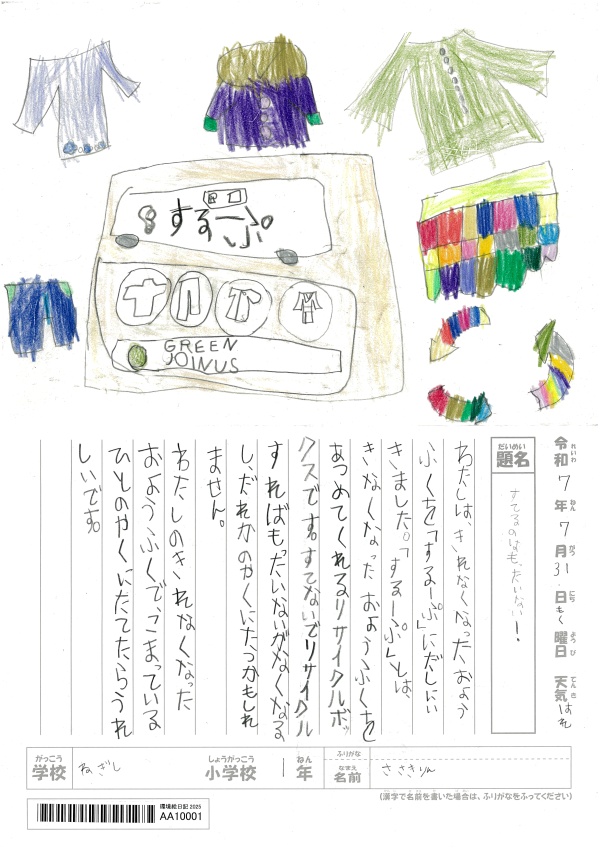 するーぷ
GREEN
JOIN US
令和 7年 7月 31日 もく曜日 天気 はれ
れいわ ねん がつ にち ようび てんき
だいめい
題名
すてるのはもったいない!
わたしは、きれなくなったおよう
ふくを「するーぷ」にだしにい
きました。「するーぷ」とは、
きなくなったおようふくを
あつめてくれるリサイクルボッ
クスです。すてないでリサイクル
すればもったいないがなくなる
し、だれかのやくにたつかもしれ
ません。
わたしのきれなくなった
おようふくで、こまっている
ひとのやくにたてたらうれ
しいです。
がっこう
学校
ねぎし
しょうがっこう
小学校
1
ねん
年
ふりがな
なまえ
名前
ささきりん
(漢字で名前を書いた場合は、ふりがなをふってください)
環境絵日記 2025
AA10001